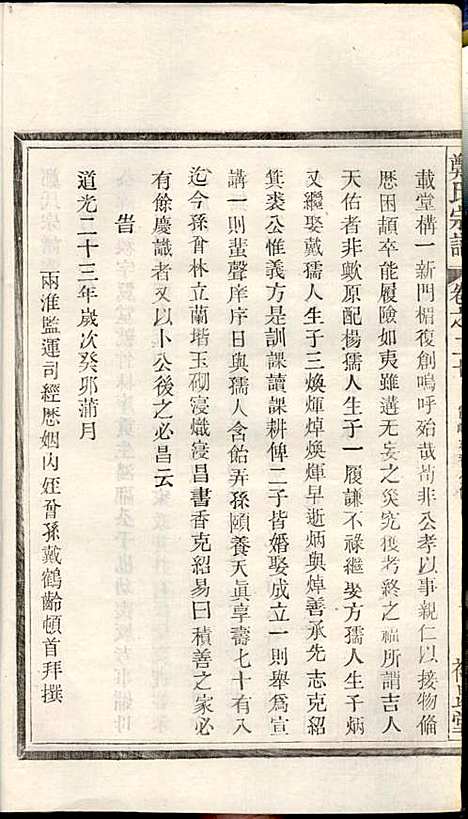 鄭氏宗譜
卷之二十
載堂構一新門楣復創嗚呼殆哉苟非公孝以事親仁以接物脩
歴困頡卒能履險如夷雖遘无妄之災究獲考終之福所謂吉人
天佑者非歟原配楊孺人生子一履謙不祿繼娶方孺人生子一炳
又繼娶戴孺人生子三煥煇焯煥煇早逝炳與焯善承先志克紹
箕裘公惟義方是訓課讀課耕俾二子皆婚娶成立一則舉爲宣
講一則蜚聲庠序日與孺人含飴弄孫頤養天眞享壽七十有八
迄今孫曾林立蘭堦玉砌寖熾寖昌書香克紹易曰積善之家必
有餘慶識者又以卜公後之必昌云
旹
道光二十三年歲次癸卯蒲月
兩淮監運司經歷姻內姪曾孫戴鶴齡頓首拜撰